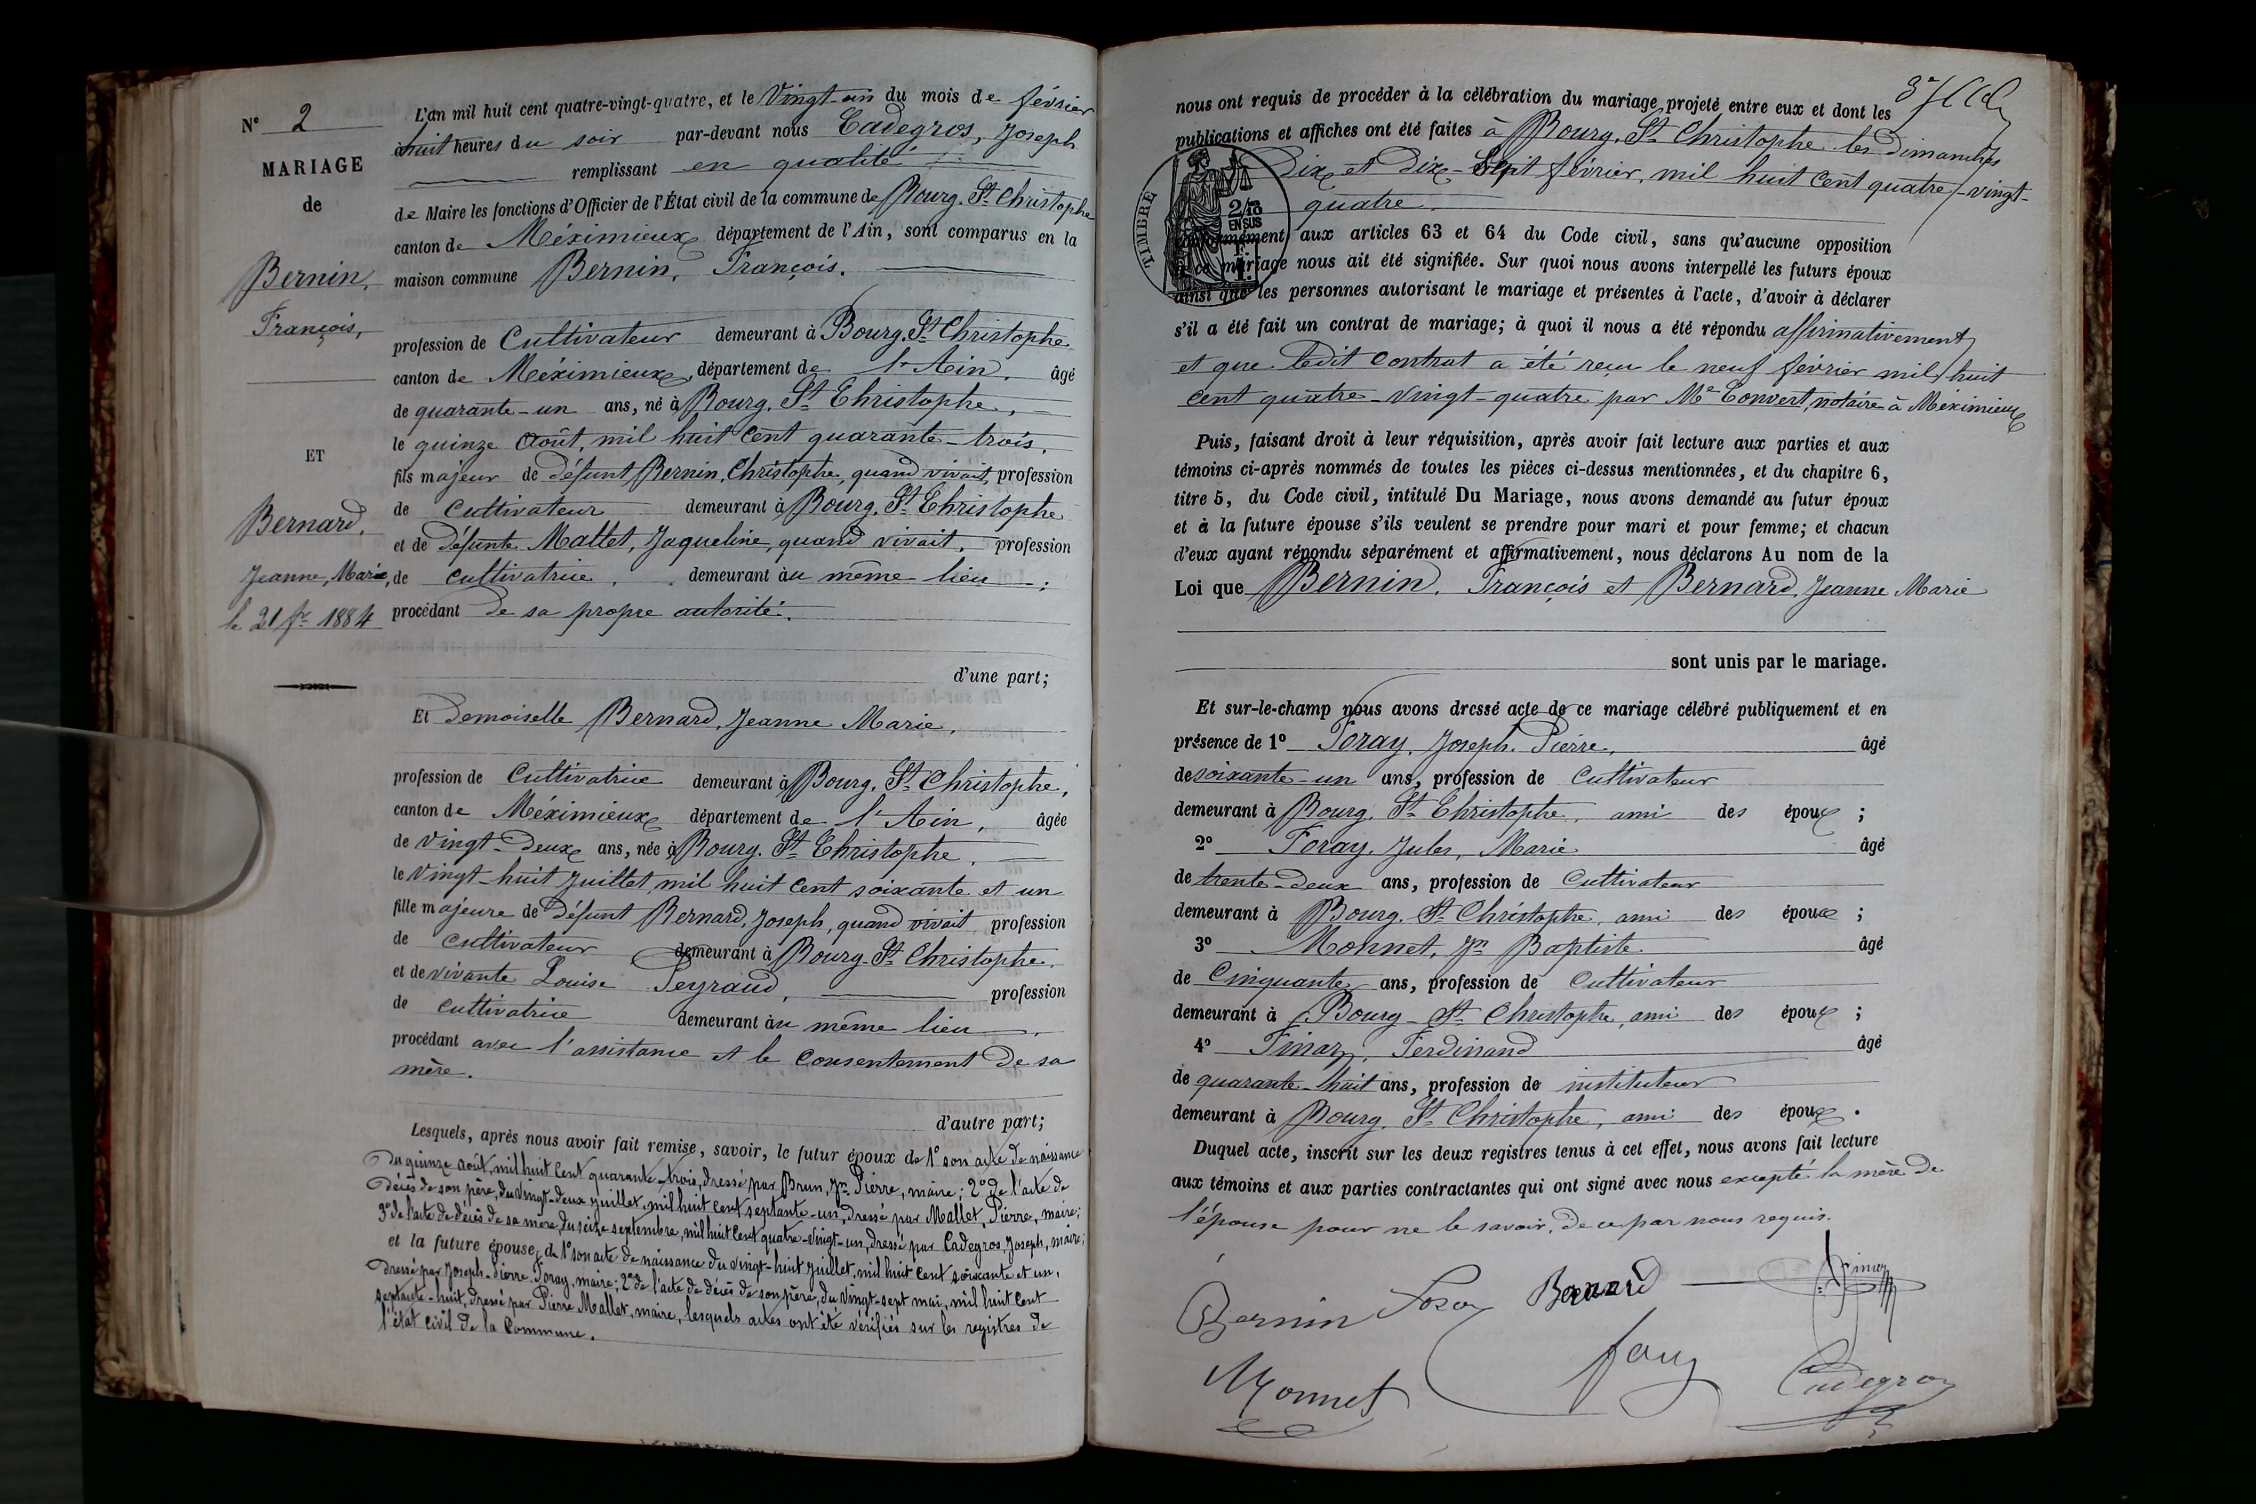 N° 2
MARIAGE
de
Bernin,
François,
ET
Bernard,
Jeanne, Marie,
le 21 fr 1884
L'an mil huit cent quatre-vingt-quatre, et le Vingt-un du mois de février
à huit heures du soir par-devant nous Cadegros, Joseph
remplissant en qualité
de Maire les fonctions d'Officier de l'État civil de la commune de Bourg. St Christophe
canton de Méximieux département de l'Ain, sont comparus en la
maison commune Bernin, François.
profession de Cultivateur demeurant à Bourg. St Christophe
canton de Méximieux, département de l'Ain, âgé
de quarante-un ans, né à Bourg. St Christophe,
le quinze août, mil huit cent quarante-trois,
fils majeur de défunt Bernin, Christophe, quand vivait, profession
de cultivateur demeurant à Bourg. St Christophe
et de défunte Mallet, Jaqueline, quand vivait, profession
de cultivatrice, demeurant au même lieu;
procédant de sa propre autorité.
d'une part;
Et demoiselle Bernard, Jeanne Marie,
profession de Cultivatrice demeurant à Bourg. St Christophe,
canton de Méximieux département de l'Ain, âgée
de vingt-deux ans, née à Bourg. St Christophe,
le Vingt-huit Juillet, mil huit cent soixante et un
fille majeure de Défunt Bernard, Joseph, quand vivait profession
de cultivateur demeurant à Bourg-St Christophe.
et de vivante Louise Peyraud, profession
de cultivatrice demeurant au même lieu,
procédant avec l'assistance et le consentement de sa
mère.
d'autre part;
Lesquels, après nous avoir fait remise, savoir, le futur époux de 1° son acte de naissance
du quinze août, mil huit cent quarante-trois, dressé par Brun, Jn Pierre, maire; 2° de l'acte de
décès de son père, du vingt-deux juillet, mil huit cent septante-un, dressé par Mallet, Pierre, maire;
3° de l'acte de décès de sa mère, du seize septembre, mil huit cent quatre-vingt-un, dressé par Cadegros, Joseph, maire;
et la future épouse, de 1° son acte de naissance du vingt-huit juillet, mil huit cent soixante et un,
dressé par Joseph-Pierre Foray, maire; 2° de l'acte de décès de son père, du vingt-sept mai, mil huit cent
septante-huit, dressé par Pierre Mallet, maire, lesquels actes ont été vérifiés sur les registres de
l'état civil de la Commune.
nous ont requis de procéder à la célébration du mariage projeté entre eux et dont les
publications et affiches ont été faites à Bourg. St Christophe les dimanches
dix et dix-sept février, mil huit cent quatre-vingt-
quatre.
TIMBRE
2/10
EN SUS
conformément aux articles 63 et 64 du Code civil, sans qu'aucune opposition
à ce mariage nous ait été signifiée. Sur quoi nous avons interpellé les futurs époux
ainsi que les personnes autorisant le mariage et présentes à l'acte, d'avoir à déclarer
s'il a été fait un contrat de mariage; à quoi il nous a été répondu affirmativement
et que ledit contrat a été reçu le neuf février mil huit
cent quatre-vingt-quatre par Me Convert, notaire à Méximieux
Puis, faisant droit à leur réquisition, après avoir fait lecture aux parties et aux
témoins ci-après nommés de toutes les pièces ci-dessus mentionnées, et du chapitre 6,
titre 5, du Code civil, intitulé Du Mariage, nous avons demandé au futur époux
et à la future épouse s'ils veulent se prendre pour mari et pour femme; et chacun
d'eux ayant répondu séparément et affirmativement, nous déclarons Au nom de la
Loi que Bernin, François et Bernard, Jeanne Marie
sont unis par le mariage.
Et sur-le-champ nous avons dressé acte de ce mariage célébré publiquement et en
présence de 1° Foray, Joseph. Pierre, âgé
de soixante-un ans, profession de cultivateur
demeurant à Bourg. St Christophe, ami des époux;
2° Foray, Jules, Marie âgé
de trente-deux ans, profession de cultivateur
demeurant à Bourg. St Christophe, ami des époux;
3° Monnet, Jn Baptiste âgé
de Cinquante ans, profession de cultivateur
demeurant à Bourg-St Christophe, ami des époux;
4° Finaz, Ferdinand âgé
de quarante-huit ans, profession de instituteur
demeurant à Bourg. St Christophe, ami des époux.
Duquel acte, inscrit sur les deux registres tenus à cet effet, nous avons fait lecture
aux témoins et aux parties contractantes qui ont signé avec nous excepté la mère de
l'épouse pour ne le savoir, de ce par nous requis.
Bernin Foray Bernard Finaz
Monnet Foray Cadegros